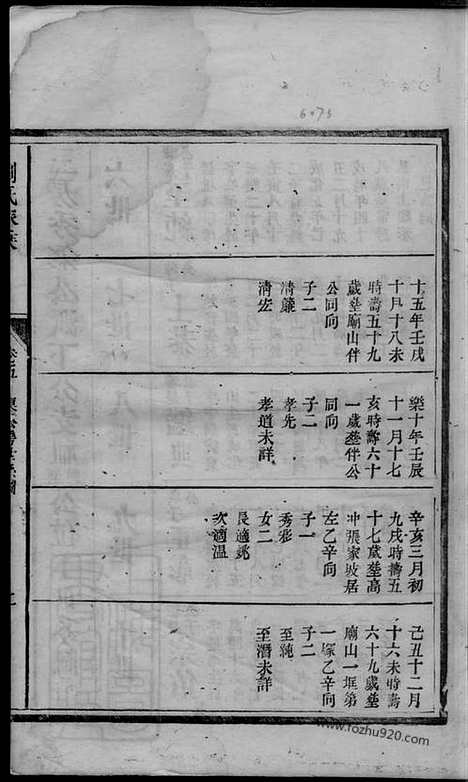 6073
十五年壬戌
十月十八未
時壽五十九
歲塟廟山伴
公同向
子二
清簾
清宏
樂十年壬辰
十一月十七
亥時壽六十
一歲塟伴公
同向
子二
孝先
孝道未詳
辛亥三月初
九戌時壽五
十七歲塟高
冲張家坡居
左乙辛向
子一
秀彩
女二
長適姚
次適溫
己丑十二月
十六未時壽
六十九歲塟
廟山一堀弟
一塚乙辛向
子二
至純
至潛未詳
卷五
www.fozhu920.com